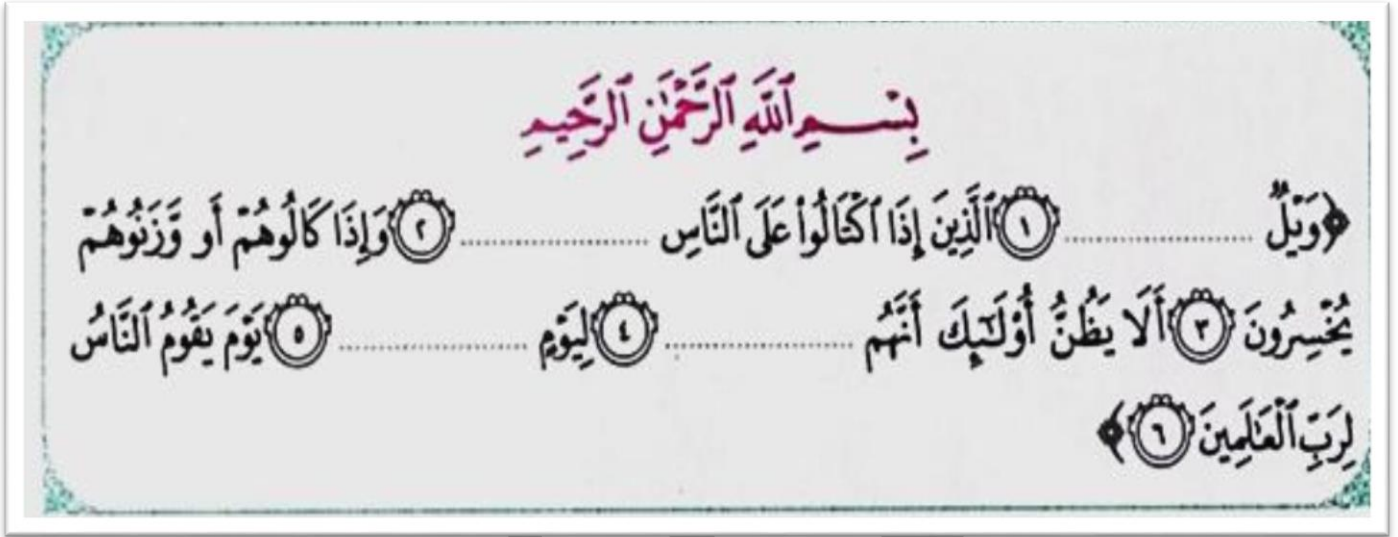 بِسْمِ ٱللَّهِ ٱلرَّحْمَٰنِ ٱلرَّحِيمِ
﴿وَيْلٌ .................... ١ ٱلَّذِينَ إِذَا ٱكْتَالُوا۟ عَلَى ٱلنَّاسِ .................... ٢ وَإِذَا كَالُوهُمْ أَو وَّزَنُوهُمْ
يُخْسِرُونَ ٣ أَلَا يَظُنُّ أُو۟لَٰٓئِكَ أَنَّهُم .................... ٤ لِيَوْمٍ .................... ٥ يَوْمَ يَقُومُ ٱلنَّاسُ
لِرَبِّ ٱلْعَٰلَمِينَ ٦﴾